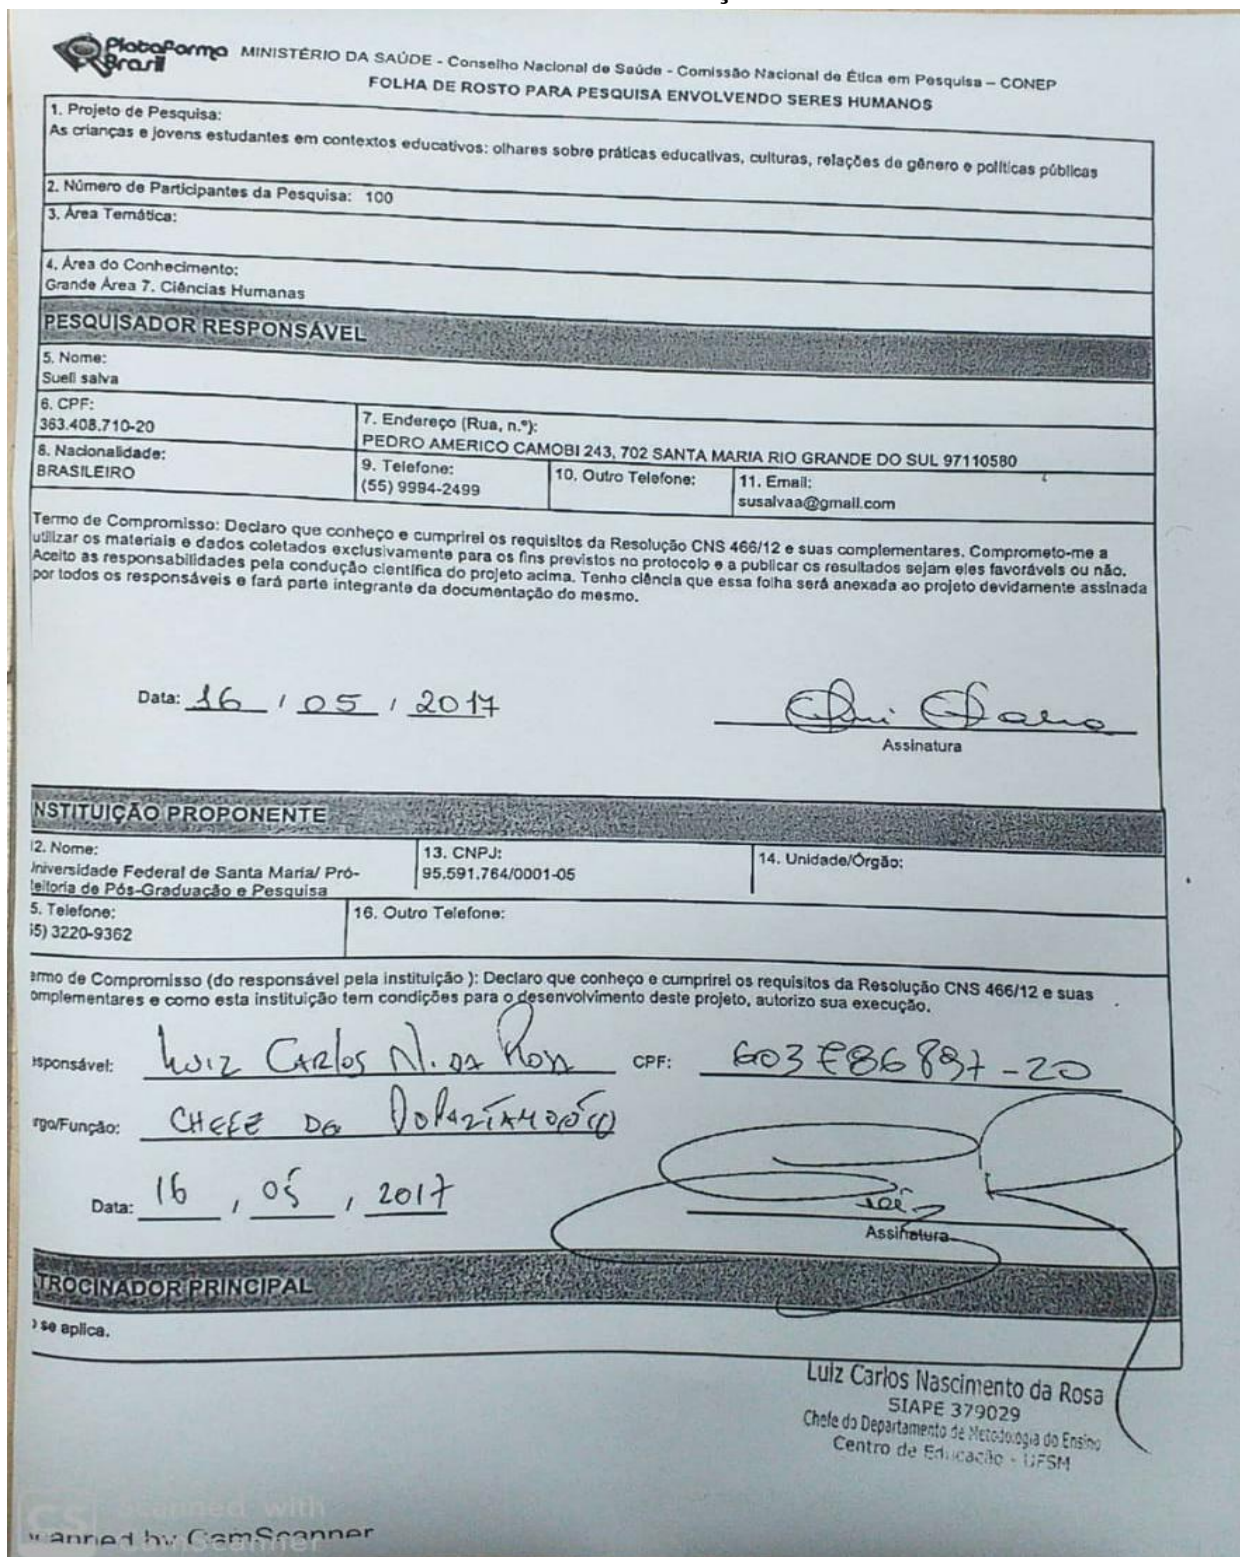 Plataforma Brasil
MINISTÉRIO DA SAÚDE - Conselho Nacional de Saúde - Comissão Nacional de Ética em Pesquisa – CONEP
FOLHA DE ROSTO PARA PESQUISA ENVOLVENDO SERES HUMANOS
1. Projeto de Pesquisa:
As crianças e jovens estudantes em contextos educativos: olhares sobre práticas educativas, culturas, relações de gênero e políticas públicas
2. Número de Participantes da Pesquisa: 100
3. Área Temática:
4. Área do Conhecimento:
Grande Área 7. Ciências Humanas
PESQUISADOR RESPONSÁVEL
5. Nome:
Sueli salva
6. CPF:
363.408.710-20
7. Endereço (Rua, n.º):
PEDRO AMERICO CAMOBI 243, 702 SANTA MARIA RIO GRANDE DO SUL 97110580
8. Nacionalidade:
BRASILEIRO
9. Telefone:
(55) 9994-2499
10. Outro Telefone:
11. Email:
susalvaa@gmail.com
Termo de Compromisso: Declaro que conheço e cumprirei os requisitos da Resolução CNS 466/12 e suas complementares. Comprometo-me a
utilizar os materiais e dados coletados exclusivamente para os fins previstos no protocolo e a publicar os resultados sejam eles favoráveis ou não.
Aceito as responsabilidades pela condução científica do projeto acima. Tenho ciência que essa folha será anexada ao projeto devidamente assinada
por todos os responsáveis e fará parte integrante da documentação do mesmo.
Data: 16 / 05 / 2017
Assinatura
NSTITUIÇÃO PROPONENTE
12. Nome:
Universidade Federal de Santa Maria/ Pró-
Reitoria de Pós-Graduação e Pesquisa
13. CNPJ:
95.591.764/0001-05
14. Unidade/Órgão:
5. Telefone:
55) 3220-9362
16. Outro Telefone:
ermo de Compromisso (do responsável pela instituição ): Declaro que conheço e cumprirei os requisitos da Resolução CNS 466/12 e suas
omplementares e como esta instituição tem condições para o desenvolvimento deste projeto, autorizo sua execução.
esponsável: Luiz Carlos N. da Rosa CPF:
rgo/Função: CHEFE DE
Data: 16 / 05 / 2017
Assinatura
TROCINADOR PRINCIPAL
o se aplica.
Luiz Carlos Nascimento da Rosa
SIAPE 379029
Chefe do Departamento de Metodologia do Ensino
Centro de Educação - UFSM
CS Scanned with
CamScanner
canned by CamScanner